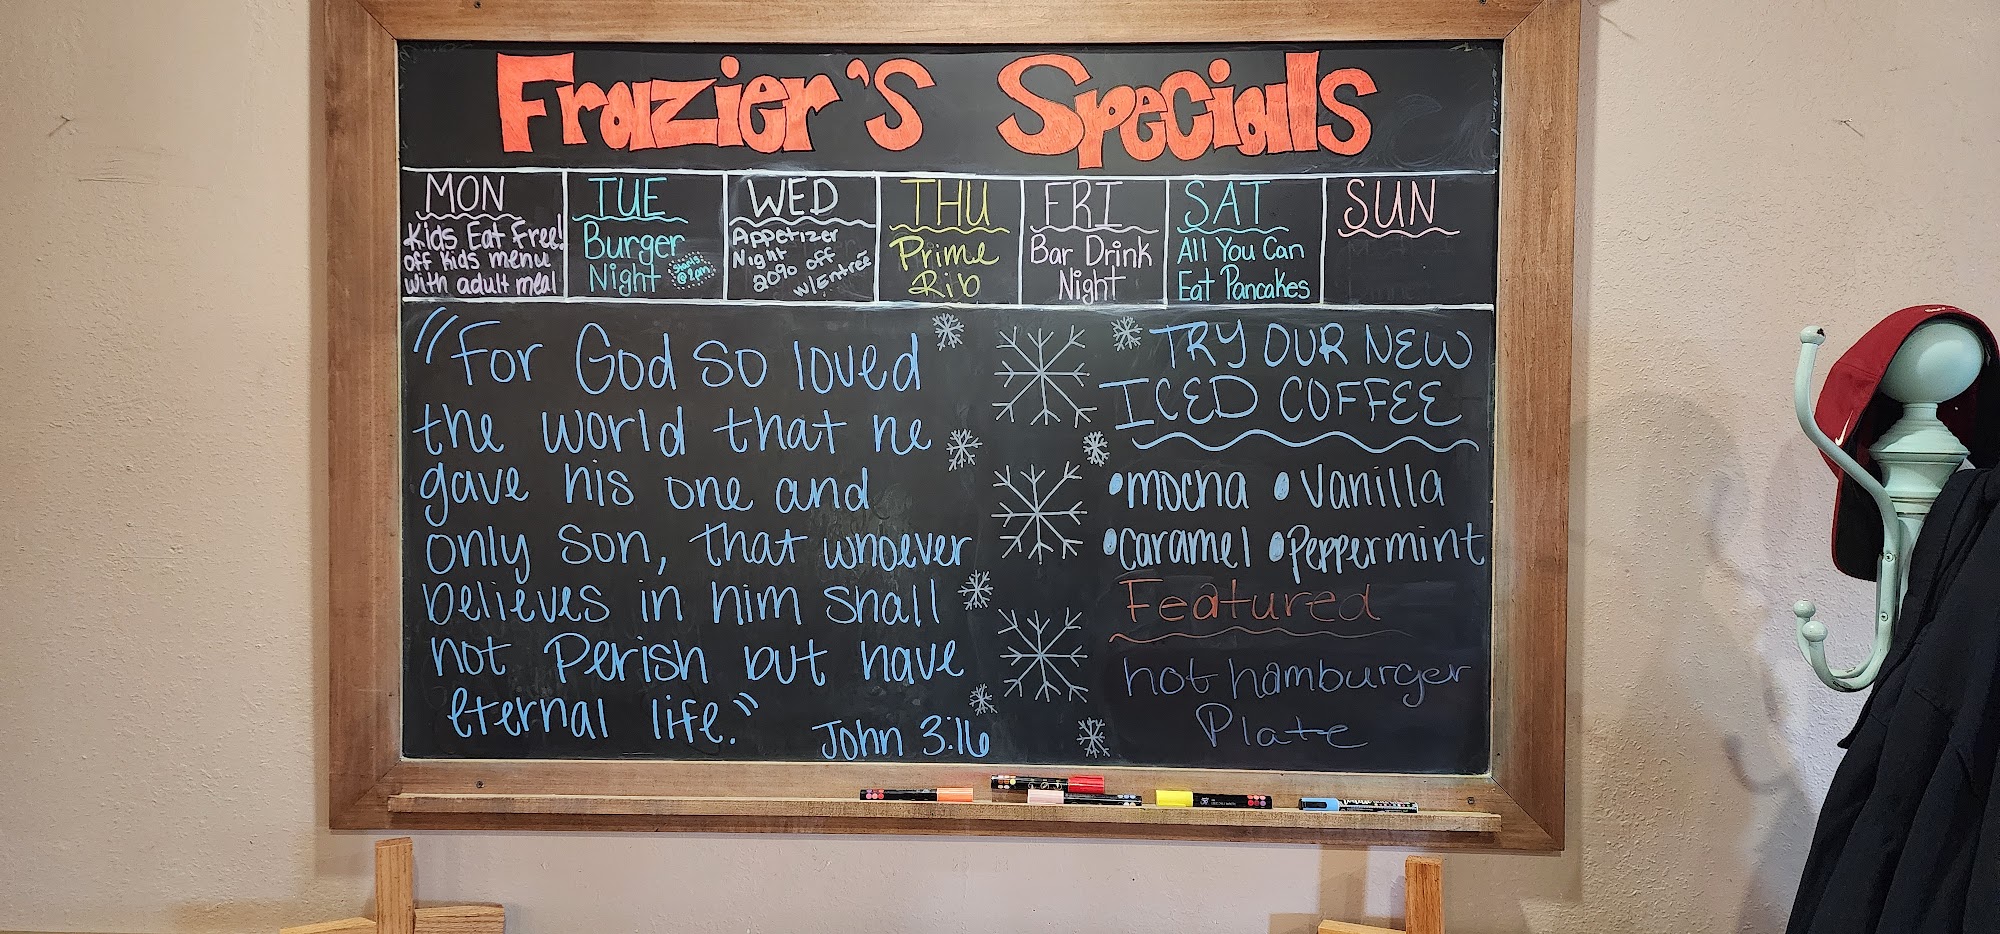 Frazier's Specials
MON
Kids Eat Free!
off kids menu
with adult meal
TUE
Burger
Night
starts
@2pm
WED
Appetizer
Night
20% off
w/Entrée
THU
Prime
Rib
FRI
Bar Drink
Night
SAT
All You Can
Eat Pancakes
SUN
"For God so loved
the world that he
gave his one and
only son, that whoever
believes in him shall
not Perish but have
eternal life."
John 3:16
TRY OUR NEW
ICED COFFEE
•mocha •Vanilla
•caramel •Peppermint
Featured
hot hamburger
Plate